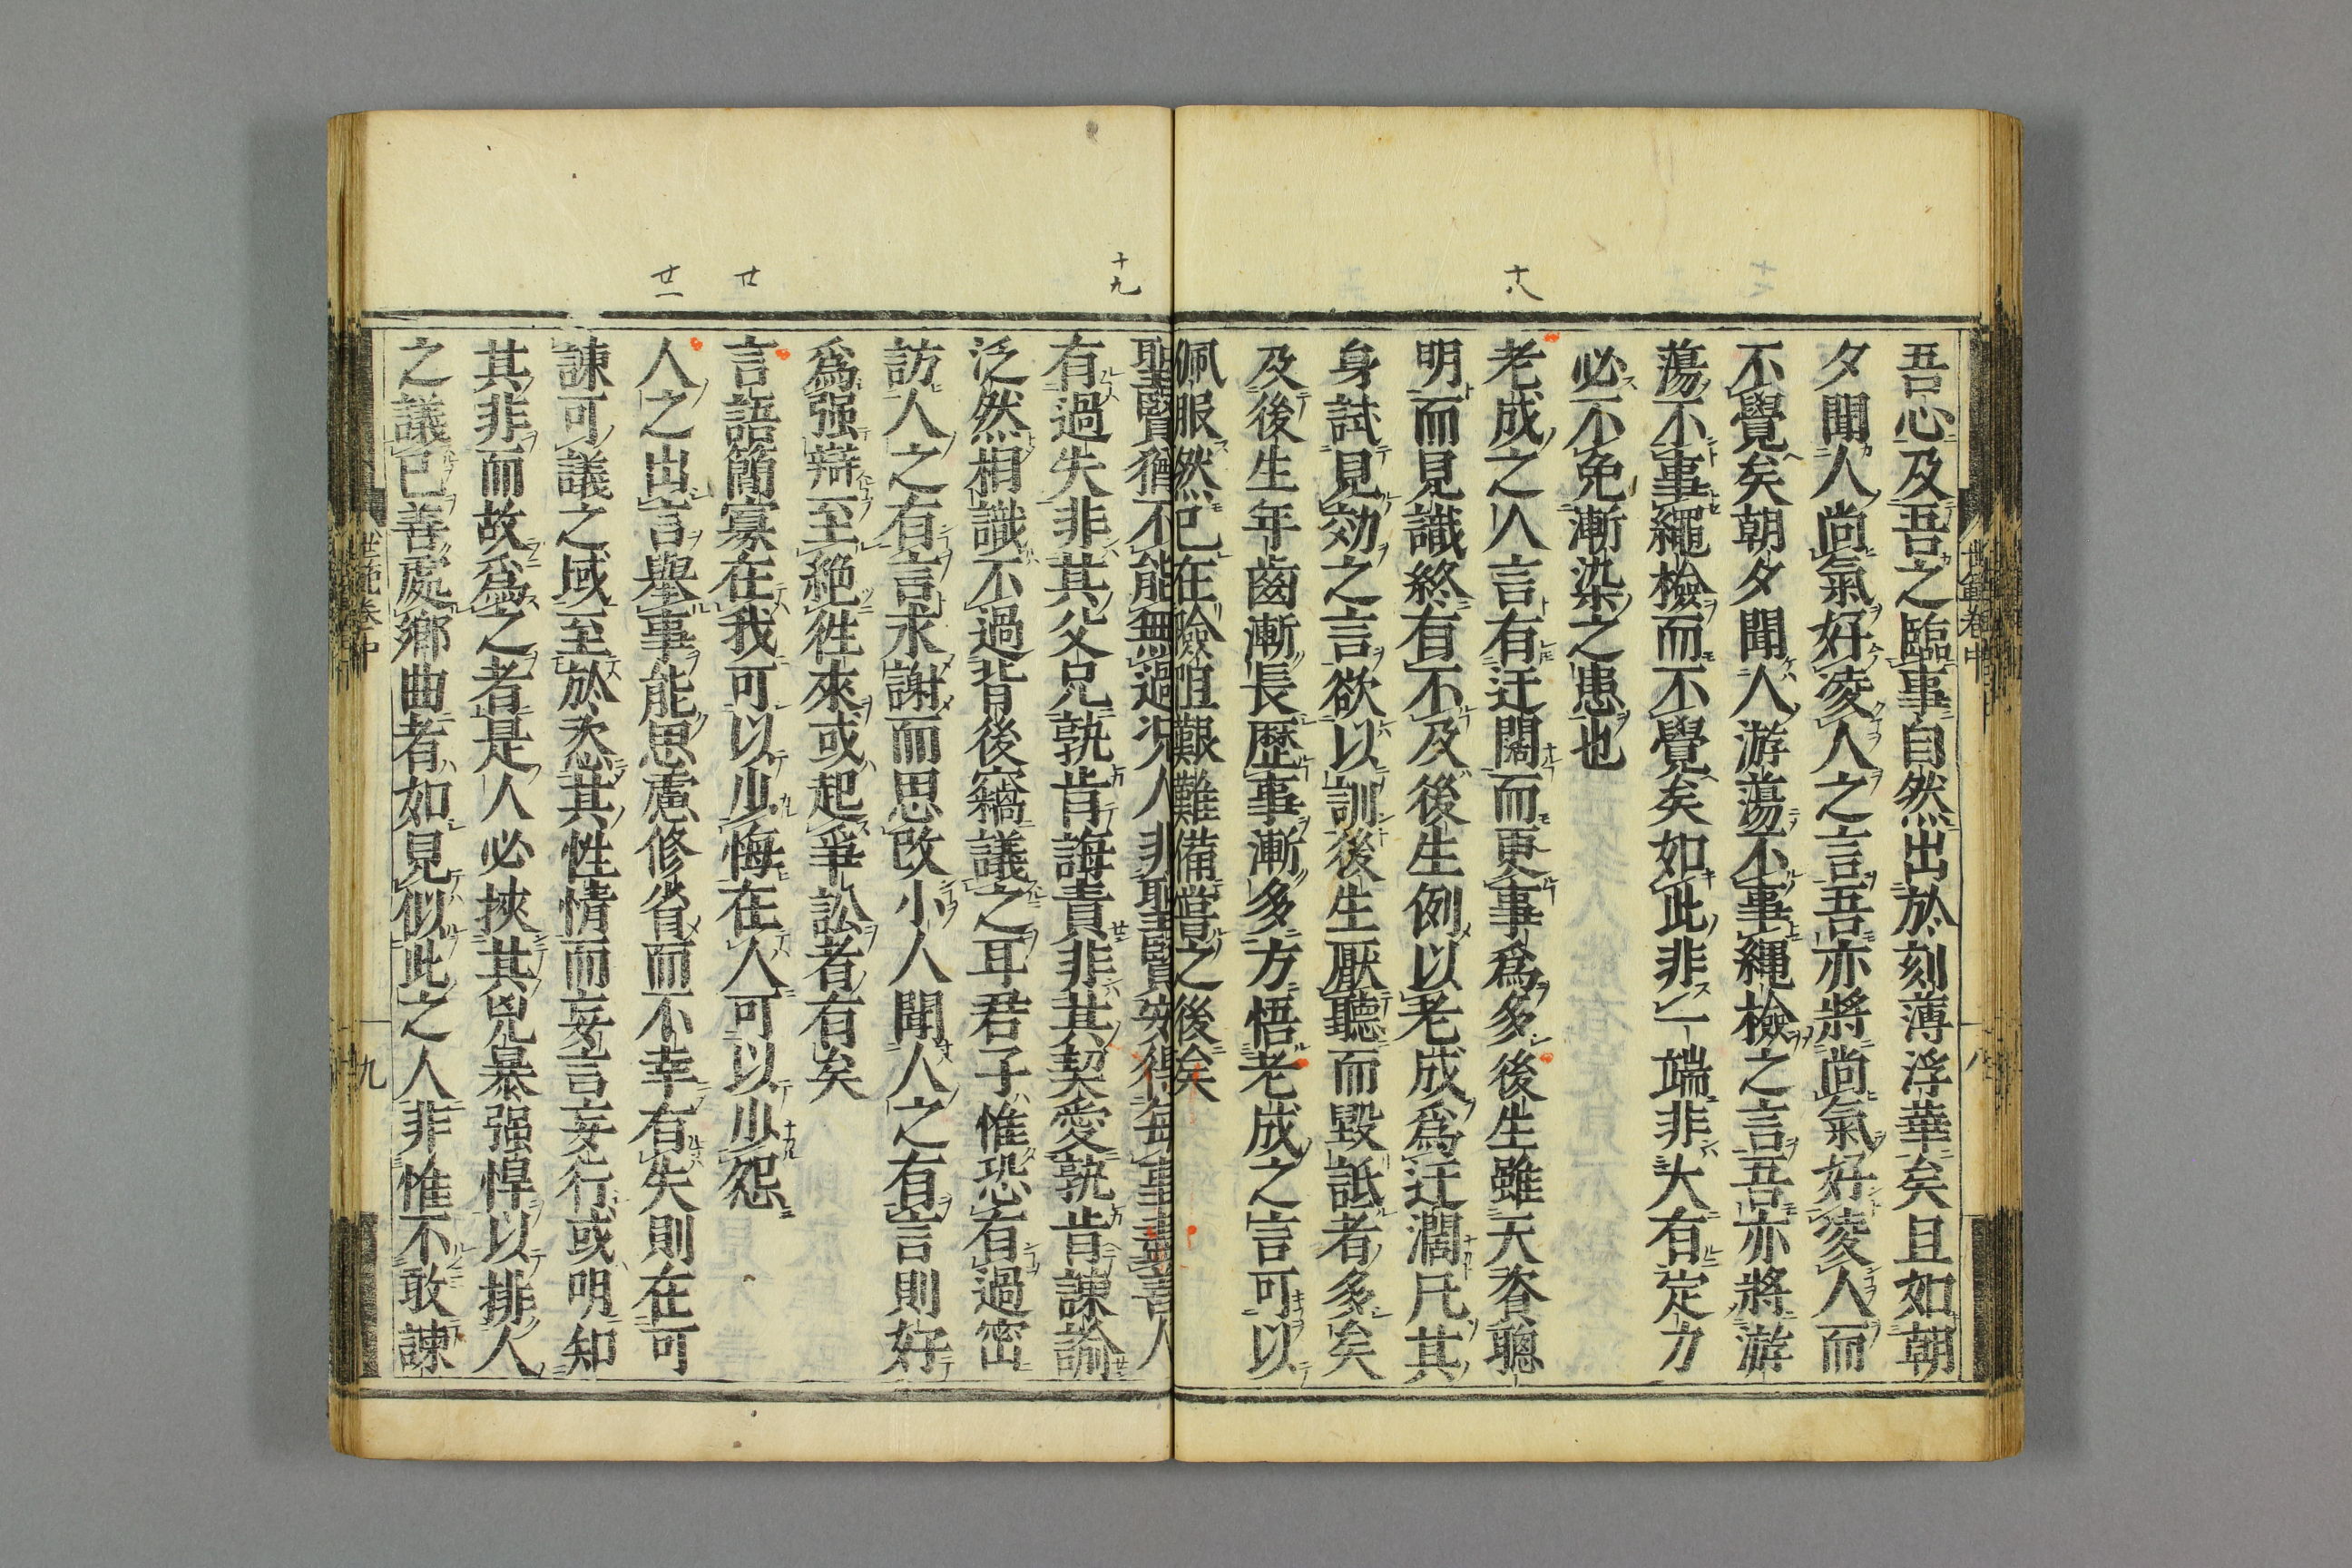 十八
吾心及吾之臨事自然出於刻薄浮華矣且如朝
夕聞人尚氣好凌人之言吾亦將尚氣好凌人而
不覺矣朝夕聞人游蕩不事繩檢之言吾亦將游
蕩不事繩檢而不覺矣如此非一端非大有定力
必不免漸染之患也
老成之人言有迂闊而更事爲多後生雖天資聰
明而見識終有不及後生例以老成爲迂濶凡其
身試見効之言欲以訓後生厭聽而毀詆者多矣
及後生年齒漸長歷事漸多方悟老成之言可以
佩服然已在險阻艱難備嘗之後矣
世範卷中
八
十九
廿
廿一
聖賢猶不能無過況人非聖賢安得每事盡善人
有過失非其父兄孰肯誨責非其契愛孰肯諫諭
泛然相識不過背後竊議之耳君子惟恐有過密
訪人之有言求謝而思改小人聞人之有言則好
爲强辯至絕徃來或起爭訟者有矣
言語簡寡在我可以少悔在人可以少怨
人之出言舉事能思慮修省而不幸有失則在可
諫可議之域至於恣其性情而妄言妄行或明知
其非而故爲之者是人必挾其兇暴强悍以排人
之議已善處鄉曲者如見似此之人非惟不敢諫
世範卷中
九